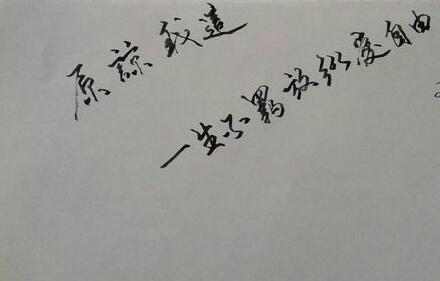 原谅我这
一生不羁放纵爱自由